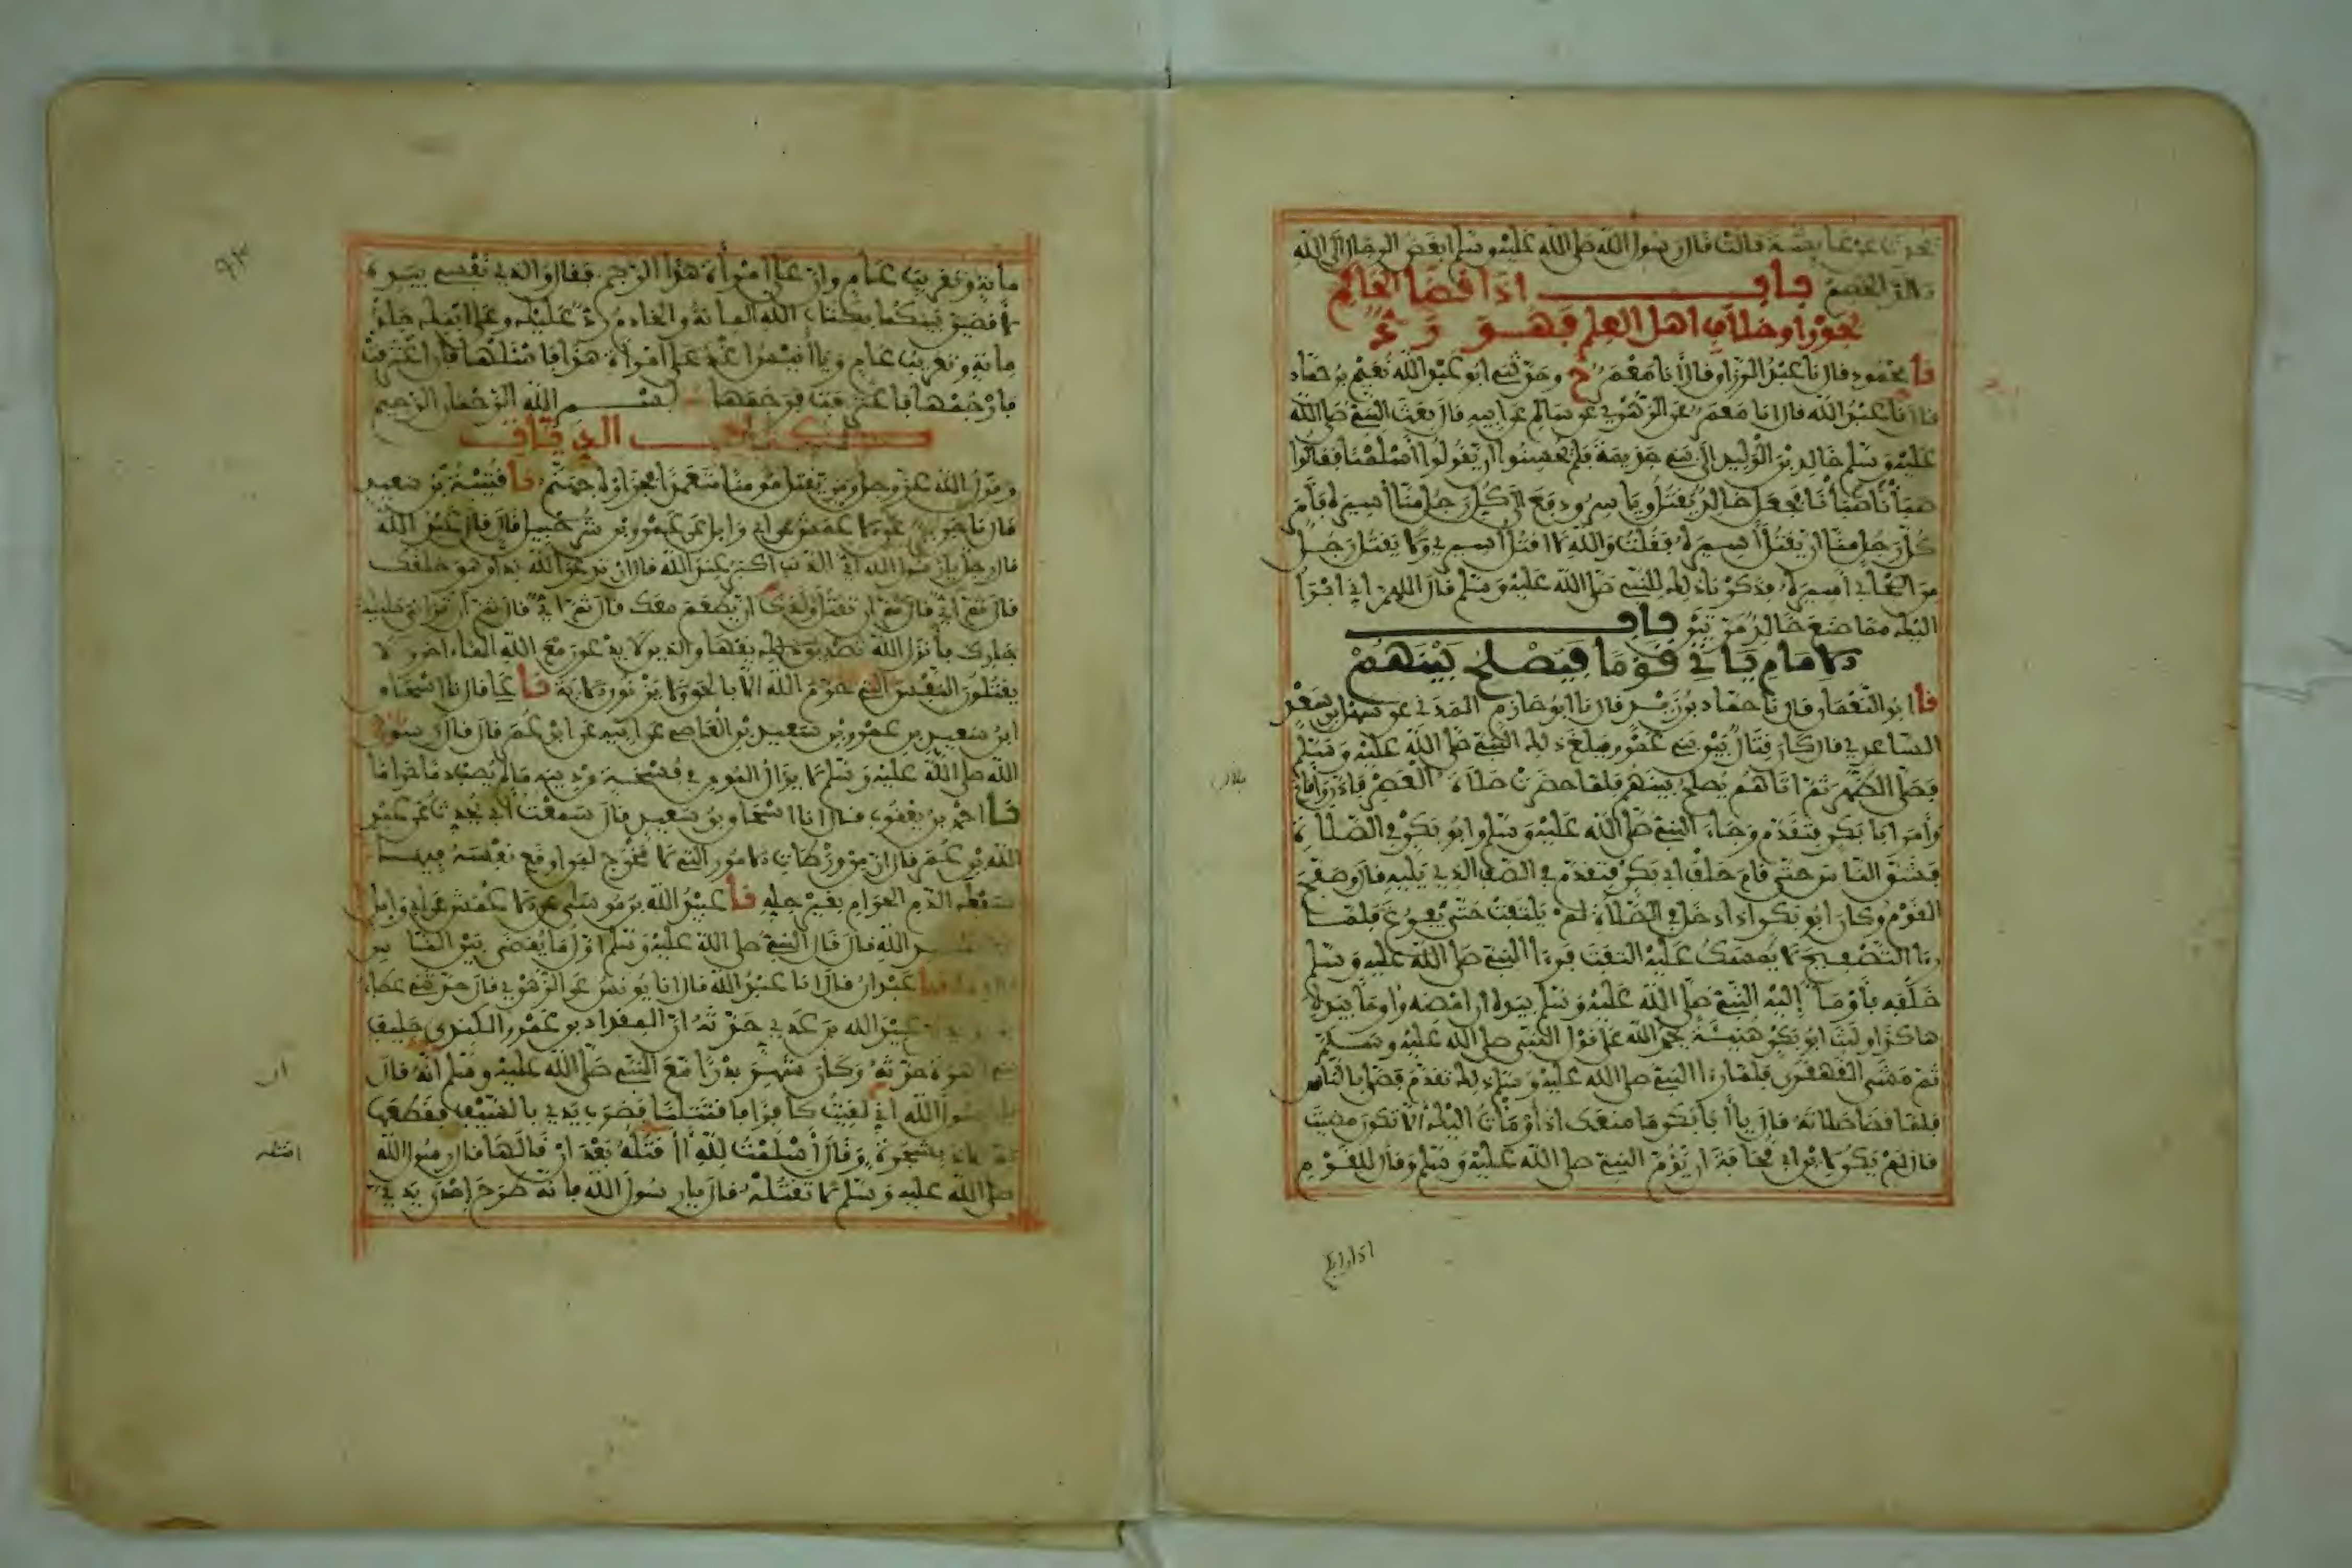 يحدث عن عايشة قالت قال رسول الله صلى الله عليه وسلم ابغض الرجال الى الله
الالد الخصم باب اذا قضا الحاكم
بجور او خلاف اهل العلم فهو رد
نا محمود قال نا عبد الرزاق قال انا معمر ح وحدثني ابو عبد الله نعيم بن حماد
قال نا عبد الله قال انا معمر عن الزهري عن سالم عن ابيه قال بعث النبي صلى الله
عليه وسلم خالد بن الوليد الى بني جذيمة فلم يحسنوا ان يقولوا اسلمنا فقالوا
صبأنا صبأنا فجعل خالد يقتل ويأسر ودفع الى كل رجل منا أسيره فأمر
كل رجل منا ان يقتل أسيره فقلت والله لا اقتل أسيري ولا يقتل رجل
من اصحابي أسيره فذكرنا ذلك للنبي صلى الله عليه وسلم قال اللهم اني ابرأ
اليك مما صنع خالد مرتين باب
الامام ياتي قوما فيصلح بينهم
نا ابو النعمان قال نا حماد بن زيد قال نا ابو حازم المدني عن سهل بن سعد
الساعدي قال كان قتال بين بني عمرو فبلغ ذلك النبي صلى الله عليه وسلم
فصلى الظهر ثم اتاهم يصلح بينهم فلما حضرت صلاة العصر فاذن واقام
وأمر ابا بكر فتقدم وجاء النبي صلى الله عليه وسلم وابو بكر في الصلاة
فشق الناس حتى قام خلف ابي بكر فتقدم في الصف الذي يليه قال وصفح
القوم وكان ابو بكر اذا دخل في الصلاة لم يلتفت حتى يفرغ فلما
رءا التصفيح لا يمسك عليه التفت فرءا النبي صلى الله عليه وسلم
خلفه فأومأ إليه النبي صلى الله عليه وسلم بيده ان امضه وأومأ بيده
هاكذا ولبث ابو بكر هنيئة يحمد الله على قول النبي صلى الله عليه وسلم
ثم مشى القهقرى فلما رءا النبي صلى الله عليه وسلم ذلك تقدم فصلى بالناس
فلما قضا صلاته قال يا أبا بكر ما منعك اذ أومأت اليك ألا تكون مضيت
قال لم يكن لابن ابي قحافة ان يؤم النبي صلى الله عليه وسلم وقال للقوم
اذا رابكم
مائة وتغريب عام وان على امرأة هذا الرجم فقال والذي نفسي بيده
لأقضين بينكما بكتاب الله المائة والخادم رد عليك وعلى ابنك جلد
مائة وتغريب عام ويا أنيس اغد على امرأة هذا فاسئلها فإن اعترفت
فارجمها فاعترفت فرجمها بسم الله الرحمان الرحيم
كتاب الديات
وقول الله عز وجل ومن يقتل مومنا متعمدا فجزاؤه جهنم نا قتيبة بن سعيد
قال نا جرير عن الاعمش عن ابي وايل عن عمرو بن شرحبيل قال قال عبد الله
قال رجل يا رسول الله أي الذنب اكبر عند الله قال ان تدعو لله ندا وهو خلقك
قال ثم أي قال ثم ان تقتل ولدك ان يطعم معك قال ثم أي قال ثم ان تزاني حليلة
جارك فأنزل الله تصديق ذلك والذين لا يدعون مع الله الها ءاخر ولا
يقتلون النفس التي حرم الله الا بالحق ولا يزنون الاية نا علي قال نا اسحاق
ابن سعيد بن عمرو بن سعيد بن العاصي عن ابيه عن ابن عمر قال قال رسول
الله صلى الله عليه وسلم لا يزال المومن في فسحة من دينه ما لم يصب دما حراما
نا احمد بن يعقوب قال انا اسحاق بن سعيد قال سمعت أبي يحدث عن عبد
الله بن عمر قال ان من ورطات الامور التي لا مخرج لمن اوقع نفسه فيها
سفك الدم الحرام بغير حله نا عبيد الله بن موسى عن الاعمش عن ابي وايل
الله قال قال النبي صلى الله عليه وسلم اول ما يقضى بين الناس
نا عبدان قال انا عبد الله قال انا يونس عن الزهري قال حدثني عطاء
عبيد الله بن عدي حدثه ان المقداد بن عمرو الكندي حليف
بني زهرة حدثه وكان شهد بدرا مع النبي صلى الله عليه وسلم انه قال
يا رسول الله اني لقيت كافرا فاقتتلنا فضرب يدي بالسيف فقطعها
ثم لاذ بشجرة وقال أسلمت لله أاقتله بعد ان قالها قال رسول الله
صلى الله عليه وسلم لا تقتله قال يا رسول الله فإنه طرح إحدى يدي
ان